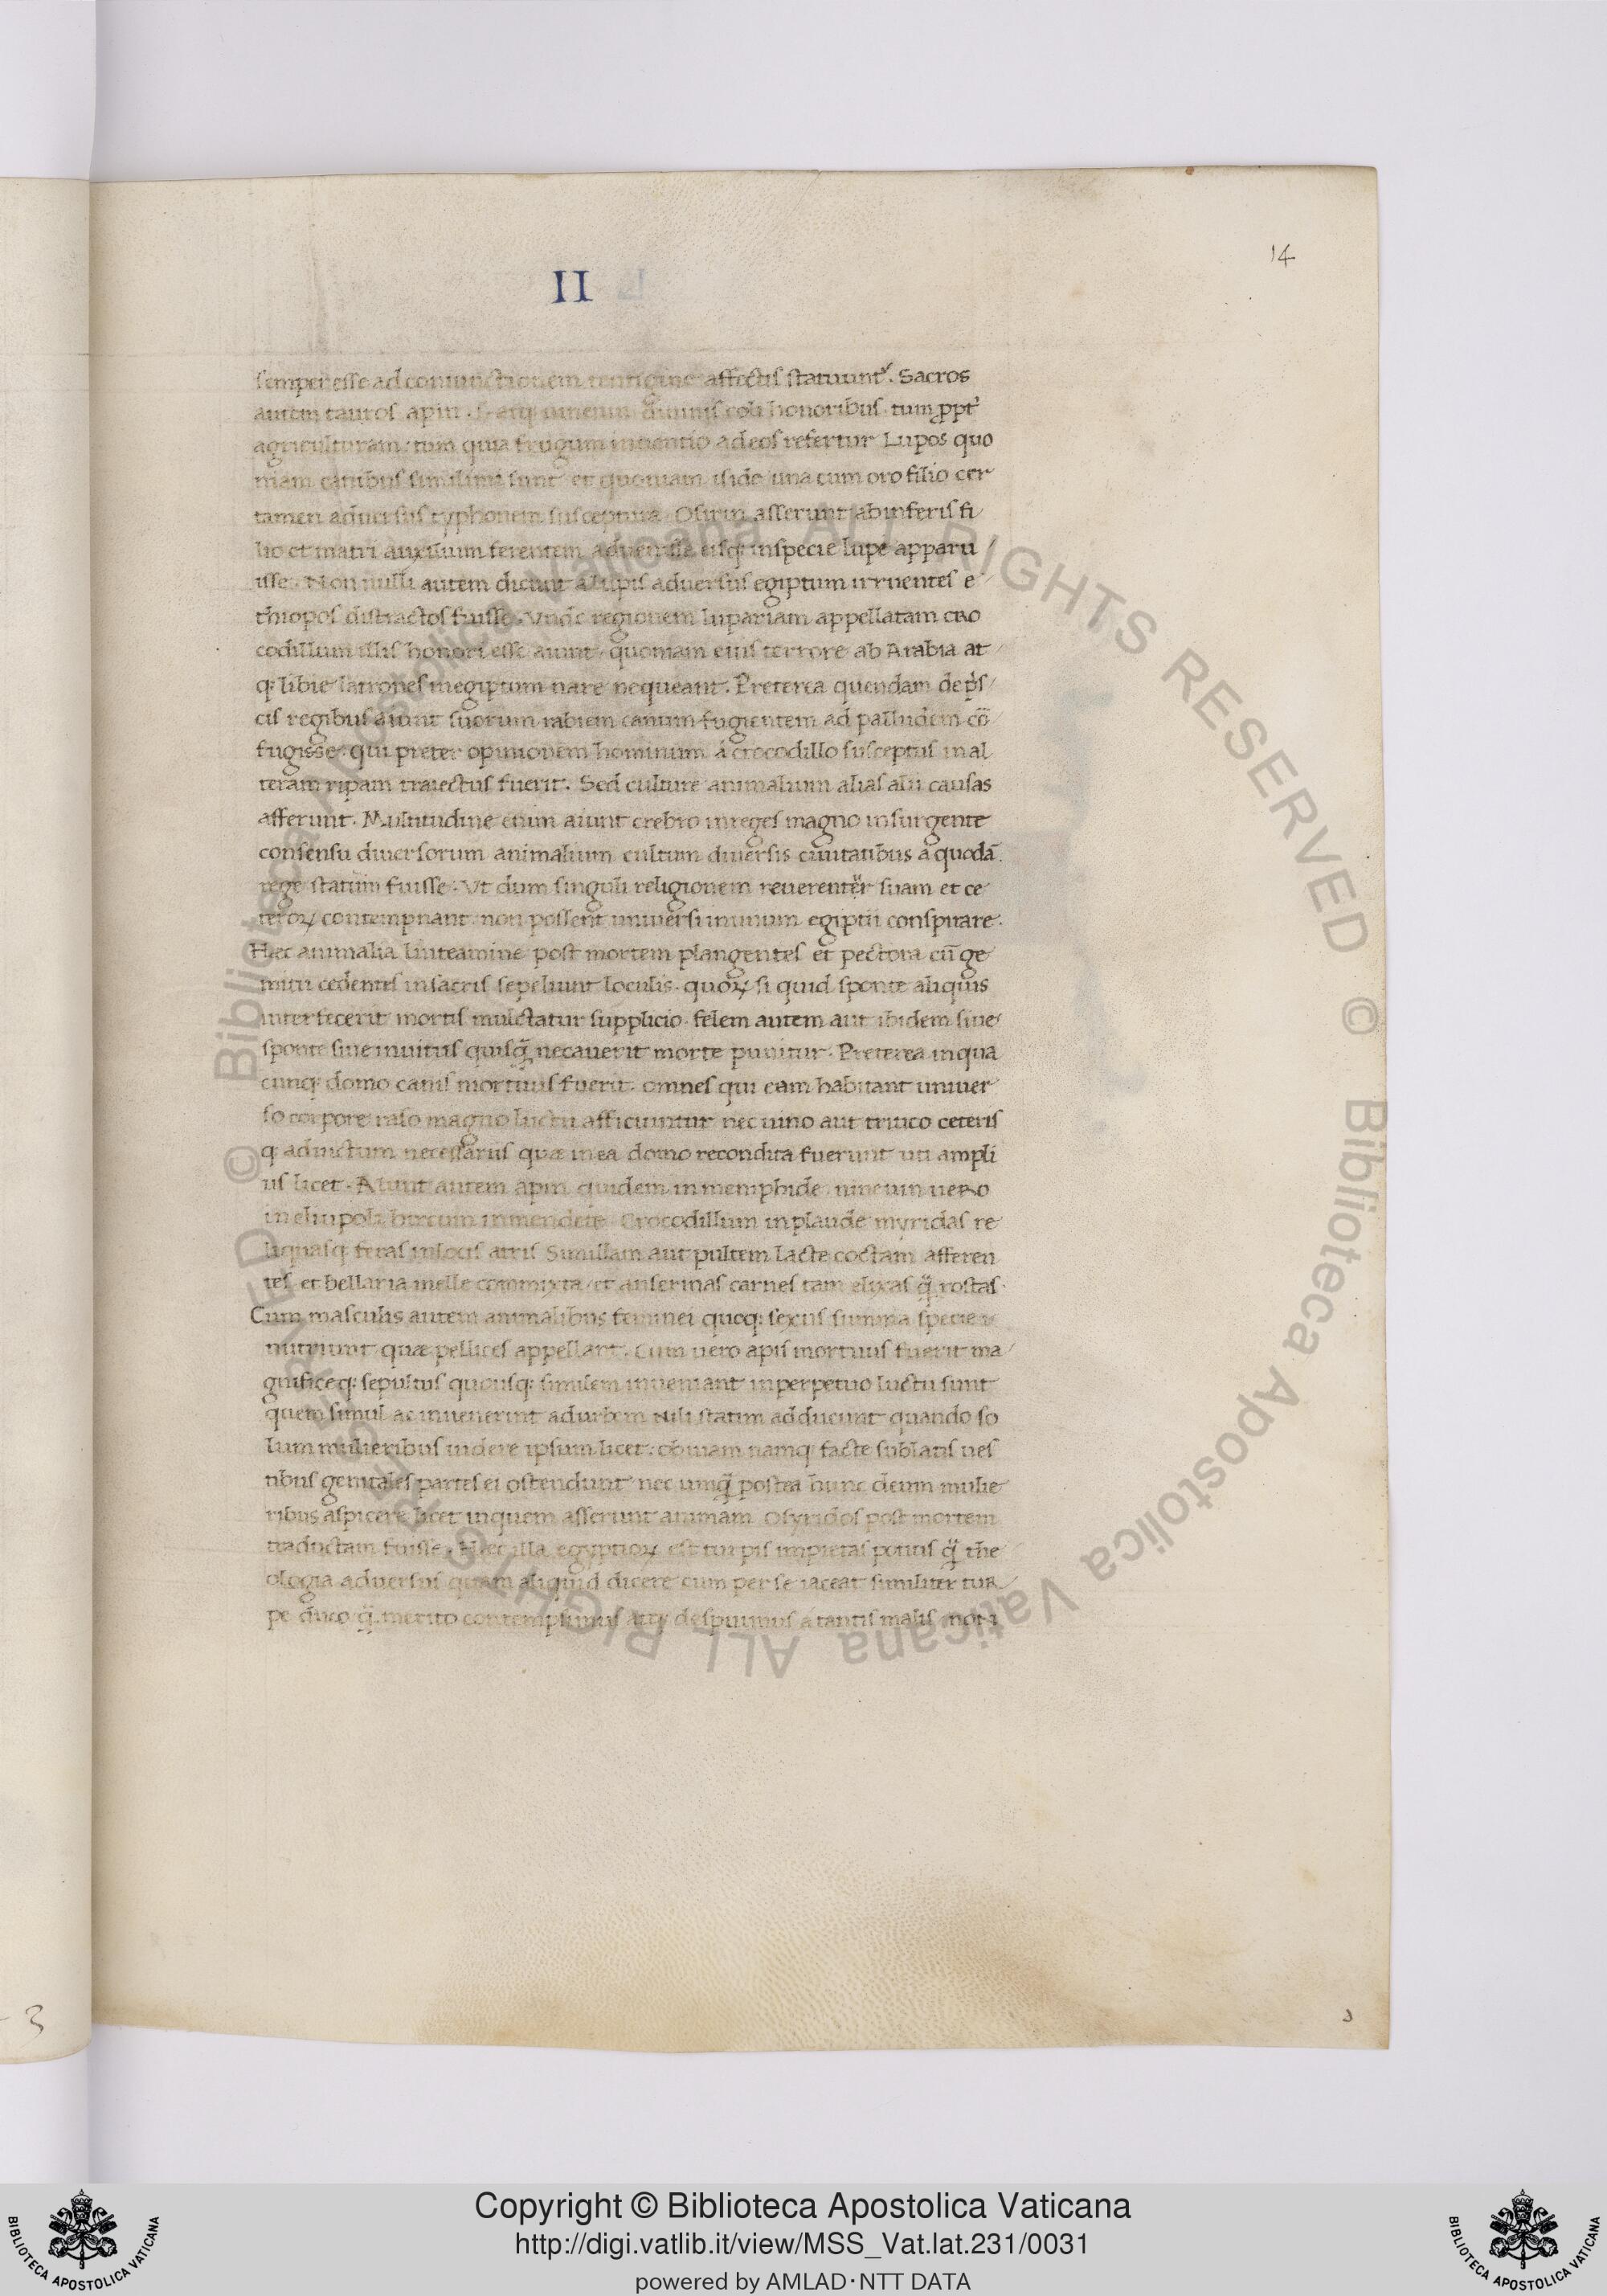 14
II
semper esse ad coniunctionem tentigine affectis statuuntr. Sacros
autem tauros apin. coli honoribus. tum ꝓpt
agriculturam. tum quia frugum inuentio ad eos refertur Lupos quo
niam canibus simillimi sunt et quoniam iside una cum oro filio cer
tamen aduersus typhonem susceptura Osirin asserunt ab inferis fi
lio et matri auxilium ferentem aduenisse eisq; in specie lupe apparu
isse. Non nulli autem dicunt a lupis aduersus egiptum irruentes e
thiopos distractos fuisse. Vnde regionem lupariam appellatam cro
codillum illis honori esse aiunt. quoniam eius terrore ab Arabia at
q: libie latrones in egiptum nare nequeant. Preterea quendam de p̄s
cis regibus aiunt suorum rabiem canum fugientem ad palludem cō
fugisse. qui preter opinionem hominum a crocodillo susceptus in al
teram ripam traiectus fuerit. Sed culture animalium alias alii causas
afferunt. Multitudine enim aiunt crebro in reges magno insurgente
consensu diuersorum animalium cultum diuersis ciuitatibus a quodā
rege statum fuisse. Vt dum singuli religionem reuerenter suam et ce
teroꝝ contempnant non possent uniuersi in unum egiptii conspirare.
Hæc animalia linteamine post mortem plangentes et pectora cū ge
mitu cedentes in sacris sepeliunt loculis. quoꝝ si quid sponte aliquis
interfecerit mortis mulctatur supplicio. felem autem aut ibidem siue
sponte siue inuitus quisq̄ necauerit morte punitur. Preterea in qua
cunq; domo canis mortuus fuerit. omnes qui eam habitant uniuer
so corpore raso magno luctu afficiuntur nec uino aut tritico ceteris
q; ad uictum necessariis quæ in ea domo recondita fuerunt uti ampli
us licet. Alunt autem apin quidem in memphide. nineum uero
in eliupoli hircum in mendete Crocodillum in plaude myridas re
liquasq; feras in locis atris Simillam aut pultem lacte coctam afferen
tes. et bellaria melle commixta. et anserinas carnes tam elixas q̄ rostas.
Cum masculis autem animalibus feminei quoq: sexus summa specie
nutriunt quæ pellices appellant. Cum uero apis mortuus fuerit ma
gnifice q; sepultus quousq; similem inueniant in perpetuo luctu sunt
quem simul ac inuenerint ad urbem Nili statim adducunt quando so
lum mulieribus uidere ipsum licet: obuiam namq; facte sublatis ues
tibus genitales partes ei ostendunt nec unq̄ postea hunc deum mulie
ribus aspicere licet in quem asserunt animam Osyridos post mortem
traductam fuisse. Hæc illa egyptioꝝ est turpis impietas potius q̄ the
ologia aduersus quam aliquid dicere cum per se iaceat similiter tur
pe duco q̄ merito contempsimus despuimus a tantis malis
Copyright © Biblioteca Apostolica Vaticana
http://digi.vatlib.it/view/MSS_Vat.lat.231/0031
powered by AMLAD·NTT DATA